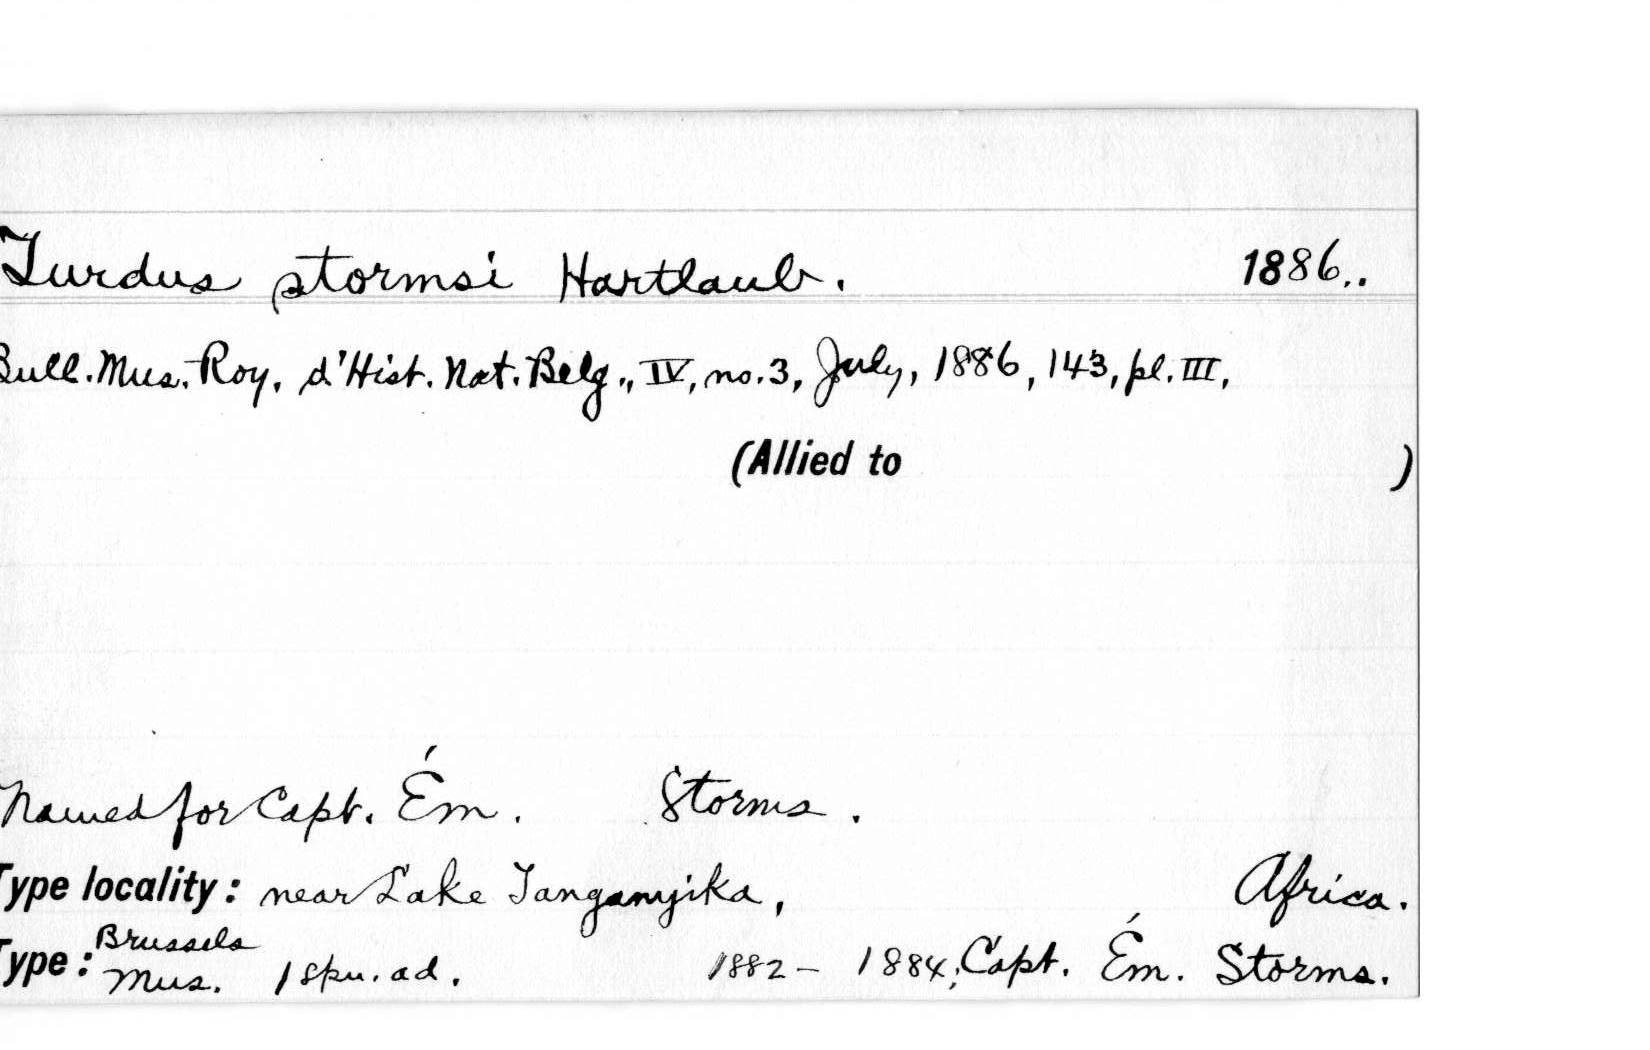 Turdus stormsi Hartlaub. 1886..
Bull. Mus. Roy. d'Hist. Nat. Belg., IV, no. 3, July, 1886, 143, pl. III,
(Allied to )
Named for Capt. Ém. Storms.
Type locality: near Lake Tanganyika, Africa.
Type: Brussels Mus. 1 spm. ad. 1882 - 1884, Capt. Ém. Storms.